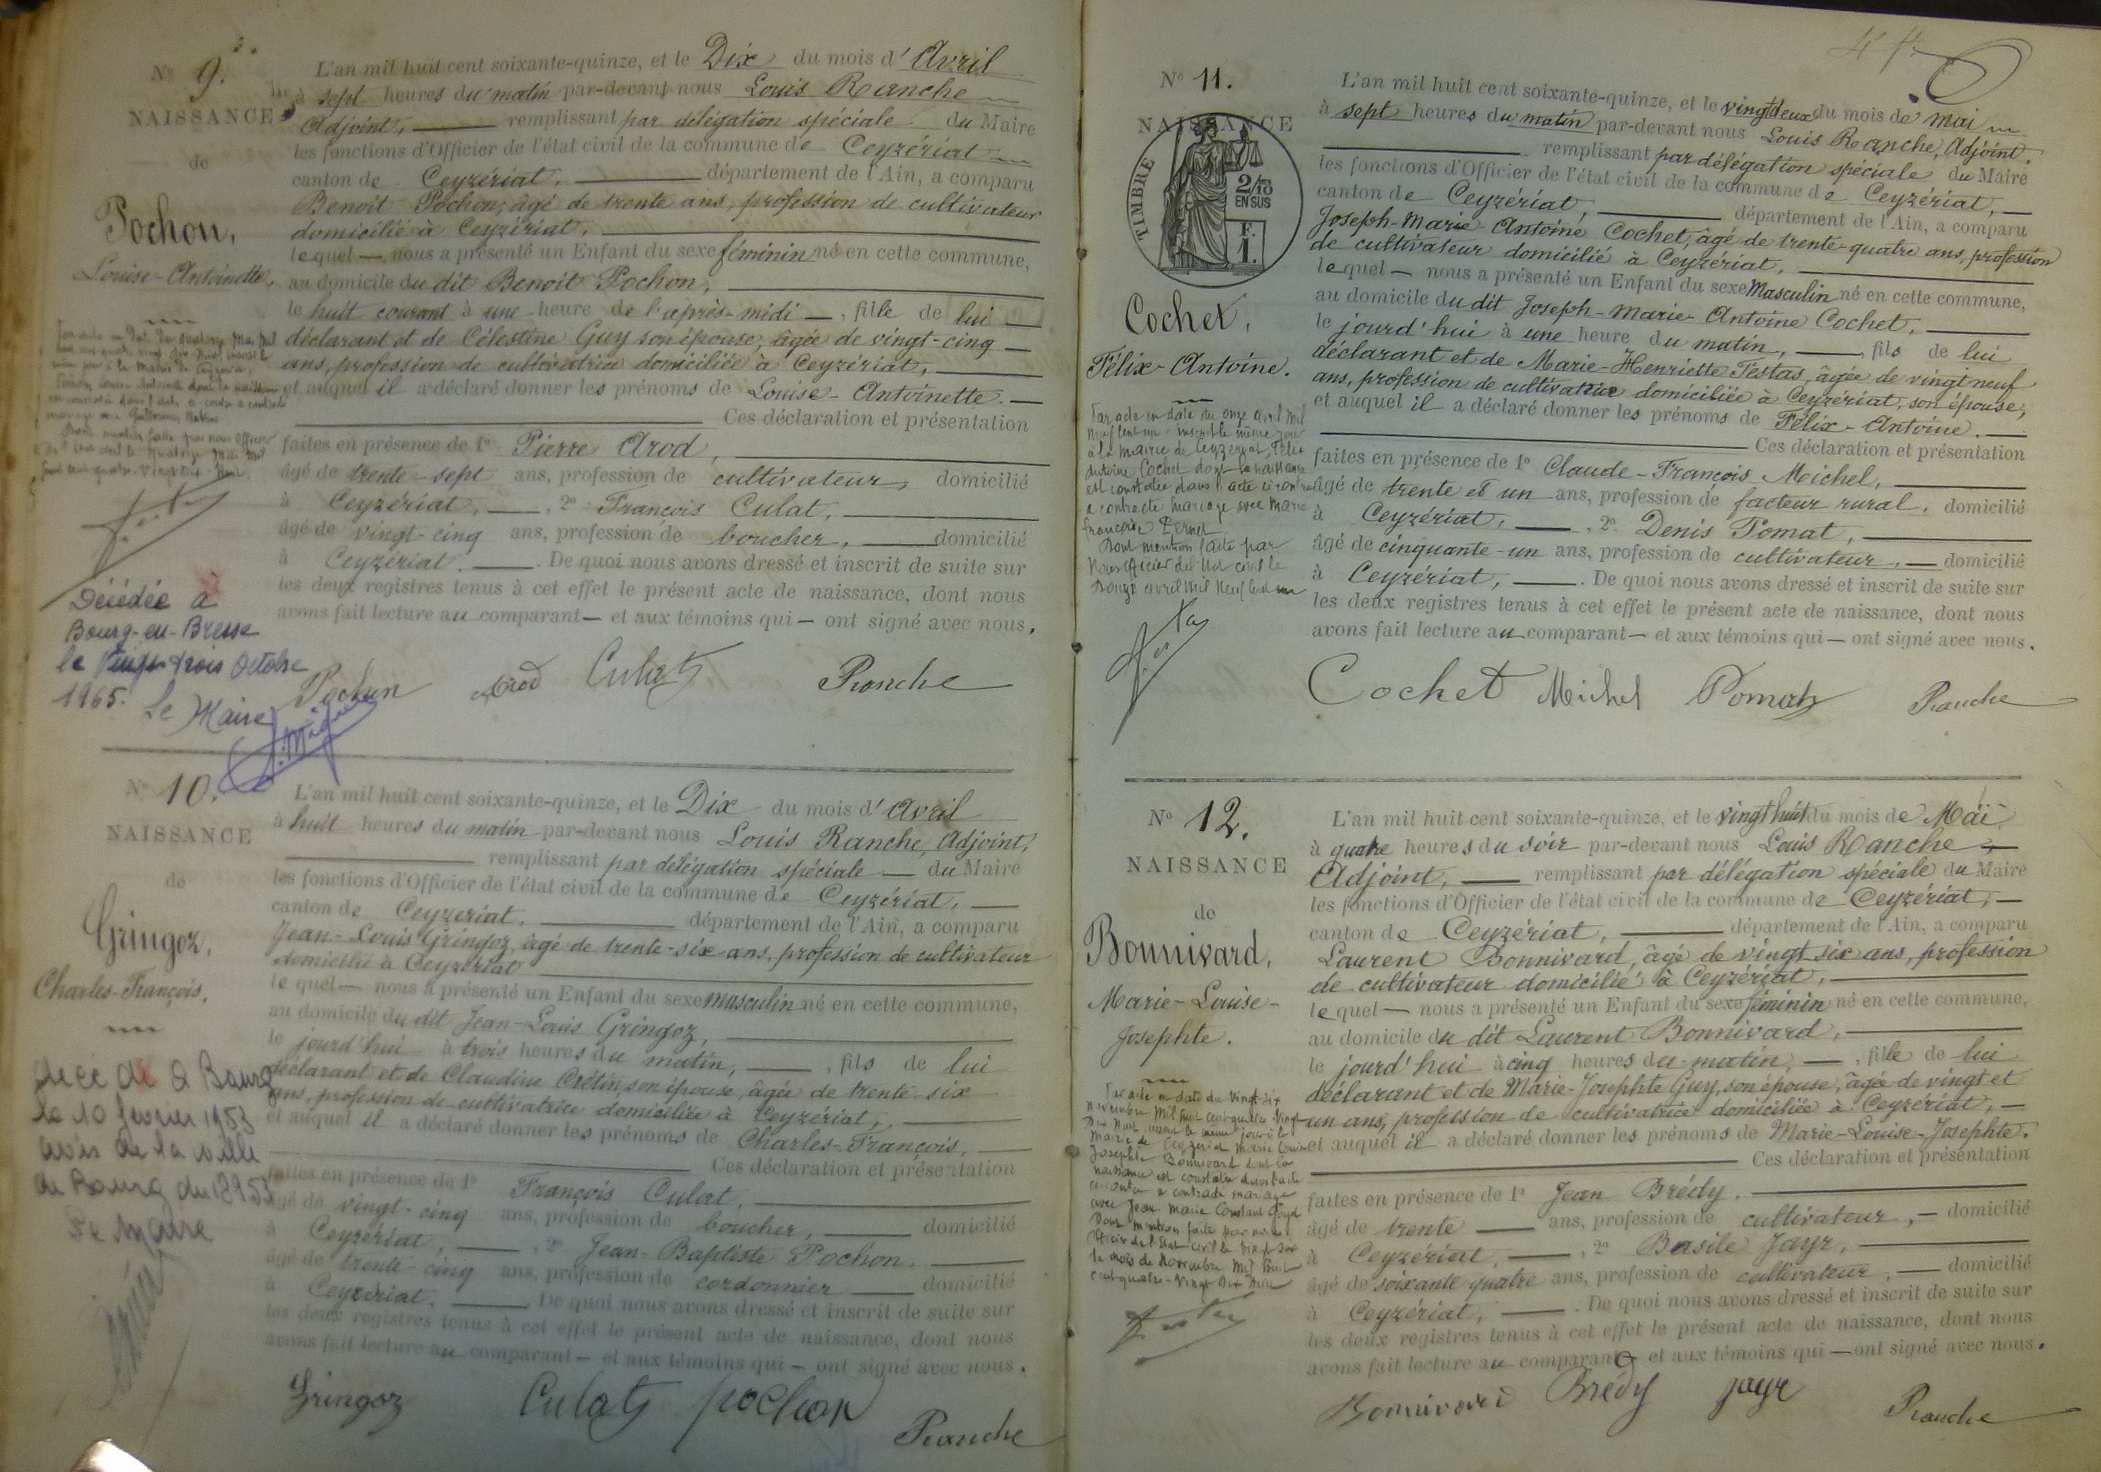 Nº 9.
NAISSANCE
de
Pochon,
Louise-Antoinette.
L'an mil huit cent soixante-quinze, et le Dix du mois d'Avril
à sept heures du matin par-devant nous Louis Ranche
Adjoint, remplissant par délégation spéciale du Maire
les fonctions d'Officier de l'état civil de la commune de Ceyzériat
canton de Ceyzériat, département de l'Ain, a comparu
Benoit Pochon, âgé de trente ans, profession de cultivateur
domicilié à Ceyzériat,
lequel nous a présenté un Enfant du sexe féminin né en cette commune,
au domicile du dit Benoit Pochon,
le huit courant à une heure de l'après-midi, fille de lui
déclarant et de Célestine Guy son épouse, âgée de vingt-cinq
ans, profession de cultivatrice domiciliée à Ceyzériat,
et auquel il a déclaré donner les prénoms de Louise-Antoinette.
Ces déclaration et présentation
faites en présence de 1º Pierre Arod,
âgé de trente-sept ans, profession de cultivateur, domicilié
à Ceyzériat, 2º François Culat,
âgé de vingt-cinq ans, profession de boucher, domicilié
à Ceyzériat. De quoi nous avons dressé et inscrit de suite sur
les deux registres tenus à cet effet le présent acte de naissance, dont nous
avons fait lecture au comparant et aux témoins qui ont signé avec nous.
Décédée à
Bourg-en-Bresse
le vingt trois Octobre
1965. Le Maire
Pochon Arod Culat Ranche
Nº 10.
NAISSANCE
de
Gringoz,
Charles-François.
L'an mil huit cent soixante-quinze, et le Dix du mois d'Avril
à huit heures du matin par-devant nous Louis Ranche, Adjoint,
remplissant par délégation spéciale du Maire
les fonctions d'Officier de l'état civil de la commune de Ceyzériat,
canton de Ceyzériat, département de l'Ain, a comparu
Jean-Louis Gringoz, âgé de trente-six ans, profession de cultivateur
domicilié à Ceyzériat
lequel nous a présenté un Enfant du sexe masculin né en cette commune,
au domicile du dit Jean-Louis Gringoz,
le jourd'hui à trois heures du matin, fils de lui
déclarant et de Claudine Crétin, son épouse, âgée de trente-six
ans, profession de cultivatrice domiciliée à Ceyzériat,
et auquel il a déclaré donner les prénoms de Charles-François,
Ces déclaration et présentation
faites en présence de 1º François Culat,
âgé de vingt-cinq ans, profession de boucher, domicilié
à Ceyzériat, 2º Jean-Baptiste Pochon,
âgé de trente-cinq ans, profession de cordonnier domicilié
à Ceyzériat. De quoi nous avons dressé et inscrit de suite sur
les deux registres tenus à cet effet le présent acte de naissance, dont nous
avons fait lecture au comparant et aux témoins qui ont signé avec nous.
à Bourg
le 10 février 1953
avis de la ville
de Bourg du
Le Maire
Gringoz Culat Pochon
Ranche
Nº 11.
NAISSANCE
TIMBRE
2/10
EN SUS
F.
1.
Cochet,
Félix-Antoine.
L'an mil huit cent soixante-quinze, et le vingt deux du mois de Mai
à sept heures du matin par-devant nous Louis Ranche, Adjoint,
remplissant par délégation spéciale du Maire
les fonctions d'Officier de l'état civil de la commune de Ceyzériat,
canton de Ceyzériat, département de l'Ain, a comparu
Joseph-Marie-Antoine Cochet, âgé de trente-quatre ans, profession
de cultivateur domicilié à Ceyzériat,
lequel nous a présenté un Enfant du sexe Masculin né en cette commune,
au domicile du dit Joseph-Marie-Antoine Cochet,
le jourd'hui à une heure du matin, fils de lui
déclarant et de Marie-Henriette Testas, âgée de vingt neuf
ans, profession de cultivatrice domiciliée à Ceyzériat, son épouse,
et auquel il a déclaré donner les prénoms de Félix-Antoine.
Ces déclaration et présentation
faites en présence de 1º Claude-François Michel,
âgé de trente et un ans, profession de facteur rural, domicilié
à Ceyzériat, 2º Denis Pomat,
âgé de cinquante-un ans, profession de cultivateur, domicilié
à Ceyzériat, De quoi nous avons dressé et inscrit de suite sur
les deux registres tenus à cet effet le présent acte de naissance, dont nous
avons fait lecture au comparant et aux témoins qui ont signé avec nous.
Par acte en date du onze avril mil
neuf cent un inscrit le même jour
à la mairie de Ceyzériat, Félix
Antoine Cochet dont la naissance
est constatée dans l'acte ci contre
a contracté mariage avec Marie
Françoise
Dont mention faite par
Nous officier de l'état civil le
douze avril mil neuf cent un
Cochet Michel Pomat Ranche
Nº 12.
NAISSANCE
de
Bonnivard,
Marie-Louise-
Josephte.
L'an mil huit cent soixante-quinze, et le vingt huit du mois de Mai
à quatre heures du soir par-devant nous Louis Ranche
Adjoint, remplissant par délégation spéciale du Maire
les fonctions d'Officier de l'état civil de la commune de Ceyzériat,
canton de Ceyzériat, département de l'Ain, a comparu
Laurent Bonnivard, âgé de vingt six ans, profession
de cultivateur domicilié à Ceyzériat,
lequel nous a présenté un Enfant du sexe féminin né en cette commune,
au domicile du dit Laurent Bonnivard,
le jourd'hui à cinq heures du matin, fille de lui
déclarant et de Marie-Josephte Guy, son épouse, âgée de vingt et
un ans, profession de cultivatrice domiciliée à Ceyzériat,
et auquel il a déclaré donner les prénoms de Marie-Louise-Josephte.
Ces déclaration et présentation
faites en présence de 1º Jean Brédy,
âgé de trente ans, profession de cultivateur, domicilié
à Ceyzériat, 2º Basile Jayr,
âgé de soixante quatre ans, profession de cultivateur, domicilié
à Ceyzériat, De quoi nous avons dressé et inscrit de suite sur
les deux registres tenus à cet effet le présent acte de naissance, dont nous
avons fait lecture au comparant et aux témoins qui ont signé avec nous.
Bonnivard Brédy Jayr Ranche